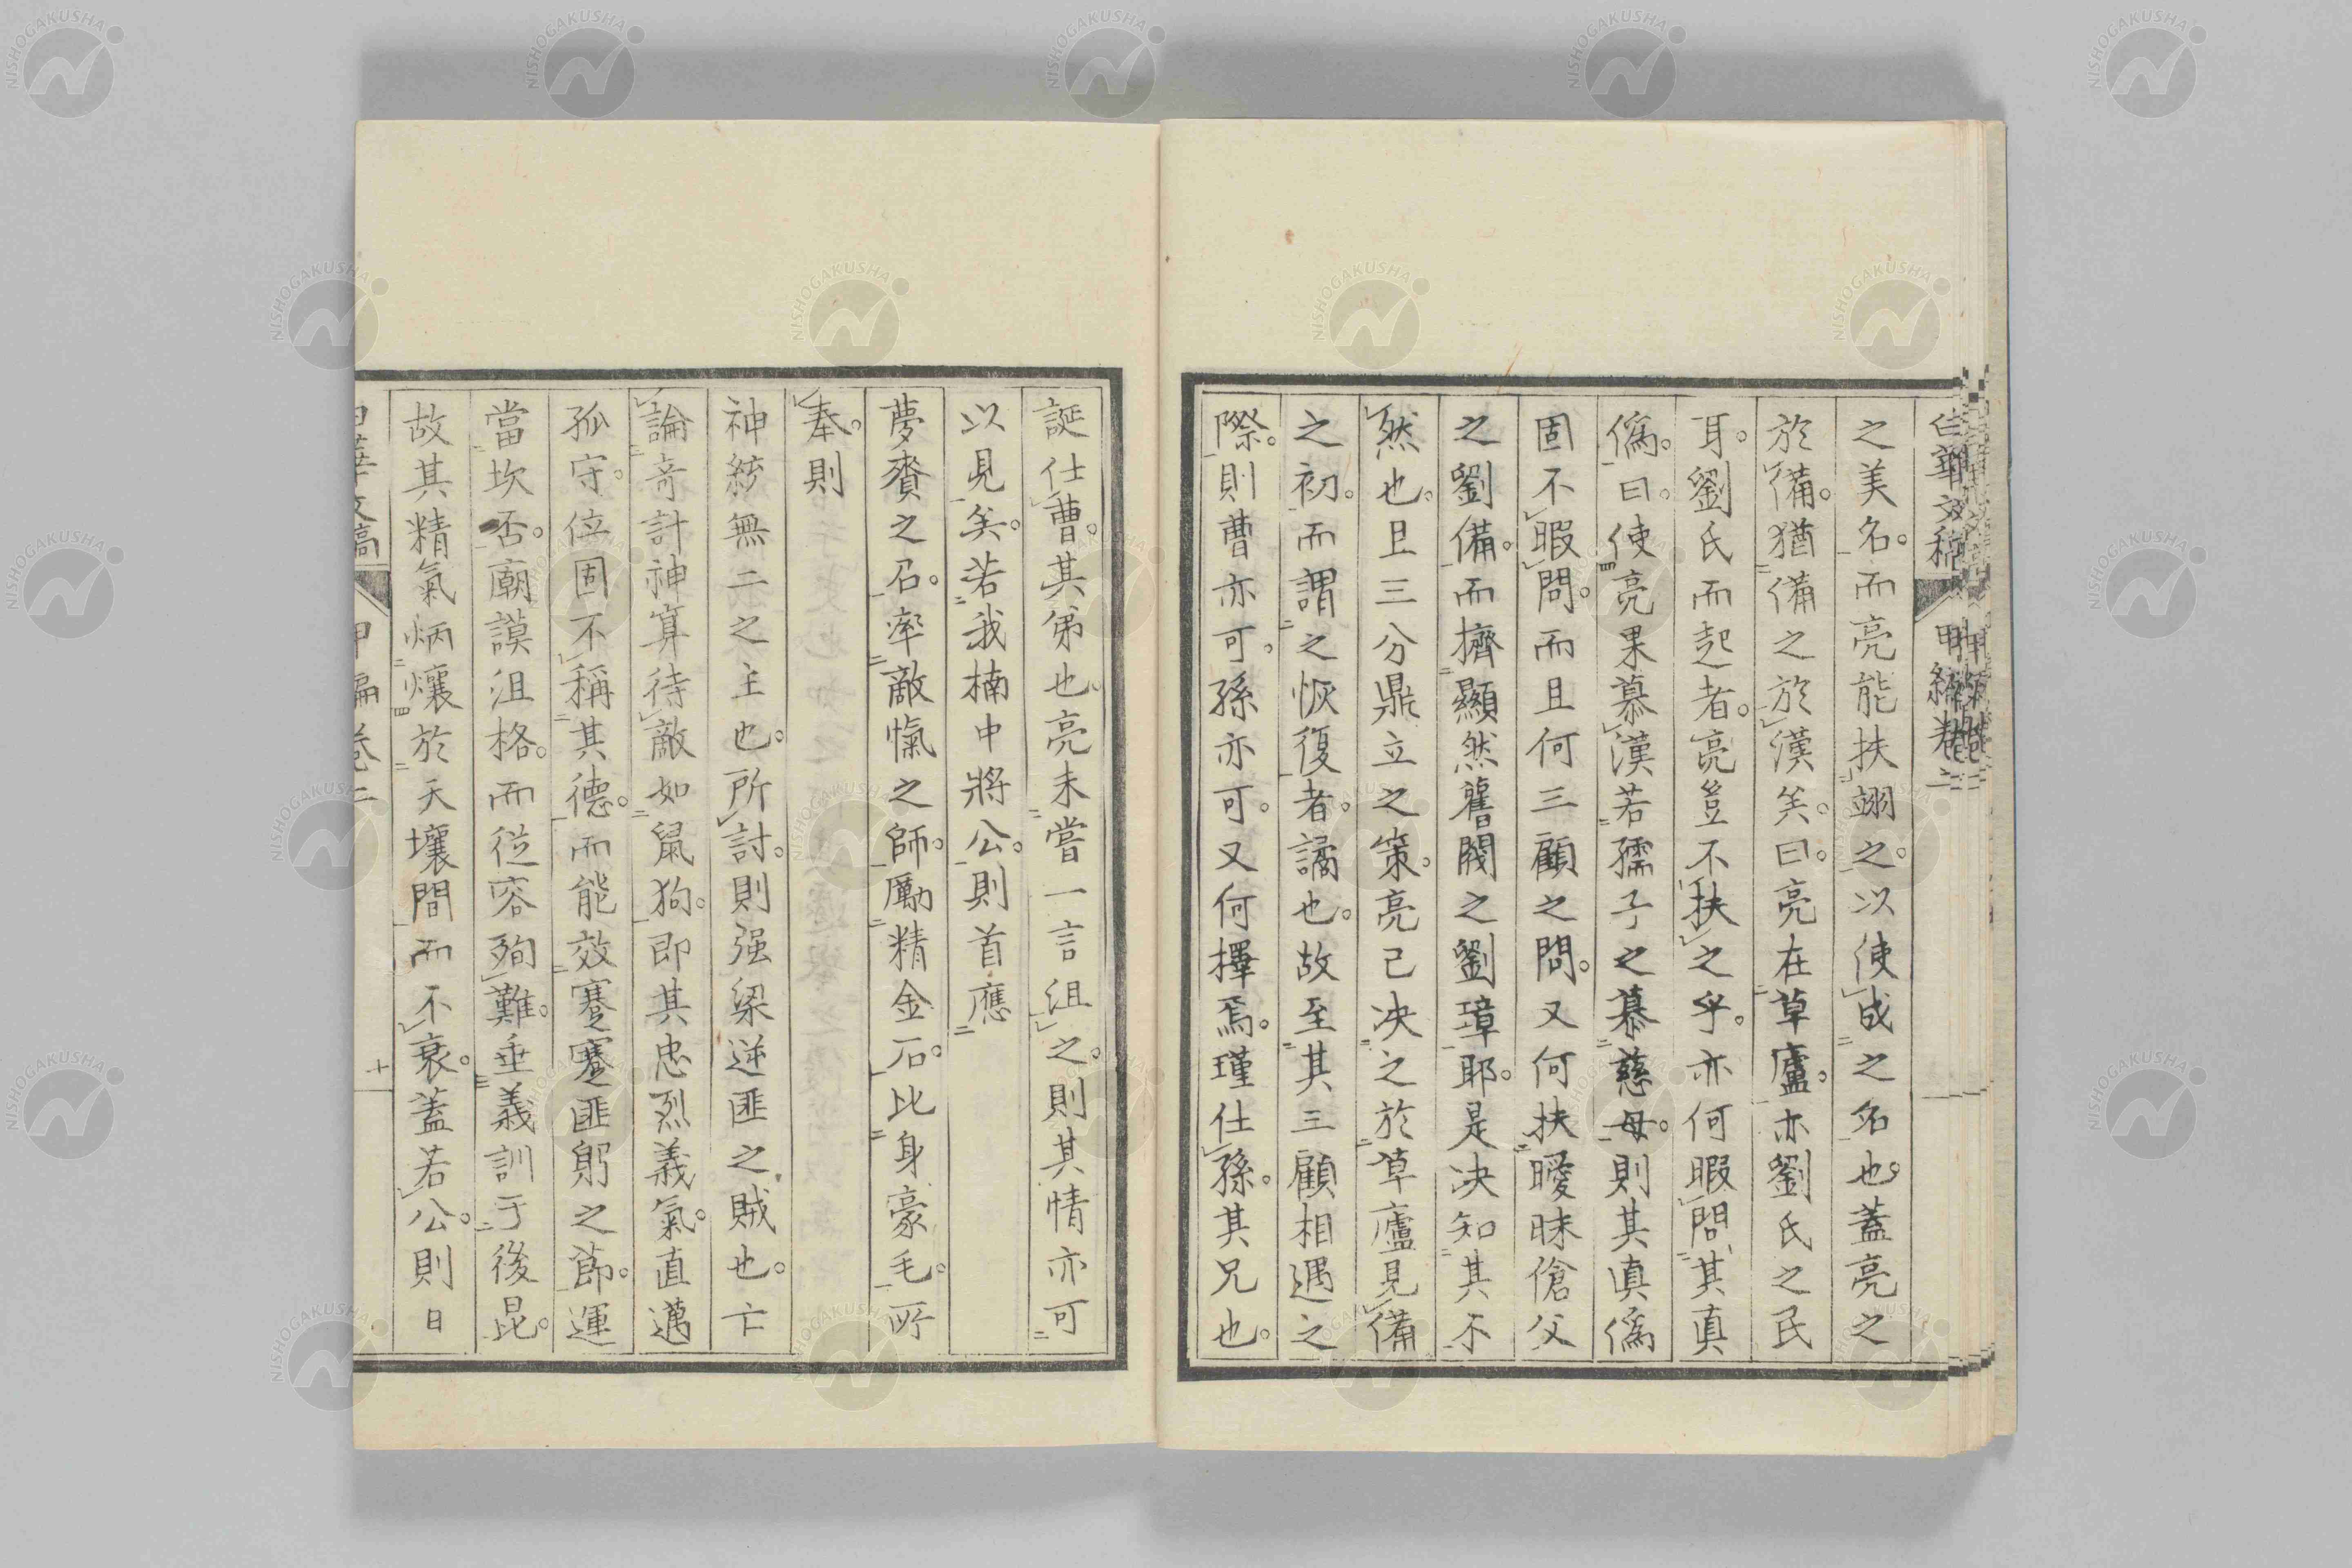 之美名。而亮能扶翊之。以使成之名也。蓋亮之
於備。猶備之於漢矣。曰。亮在草廬。亦劉氏之民
耳。劉氏而起者。亮豈不扶之乎。亦何暇問其真
僞。曰。使亮果慕漢若孺子之慕慈母。則其真僞
固不暇問。而且何三顧之問。又何扶曖昧傖父
之劉備。而擠顯然舊閥之劉璋耶。是决知其不
然也。且三分鼎立之策。亮已决之於草廬見備
之初。而謂之恢復者。譎也。故至其三顧相遇之
際。則曹亦可。孫亦可。又何擇焉。瑾仕孫。其兄也。
誕仕曹。其弟也。亮未嘗一言沮之。則其情亦可
以見矣。若我楠中將公。則首應
夢賚之召。率敵愾之師。勵精金石。比身豪毛。所
奉。則
神統無二之主也。所討。則强梁逆匪之賊也。亡
論奇計神算待敵如鼠狗。即其忠烈義氣。直邁
孤守。位固不稱其德。而能效蹇蹇匪躬之節。運
當坎否。廟謨沮格。而從容殉難。垂義訓于後昆。
故其精氣炳爤於天壤間而不衰。蓋若公。則日
白華文稿 甲編卷二 十